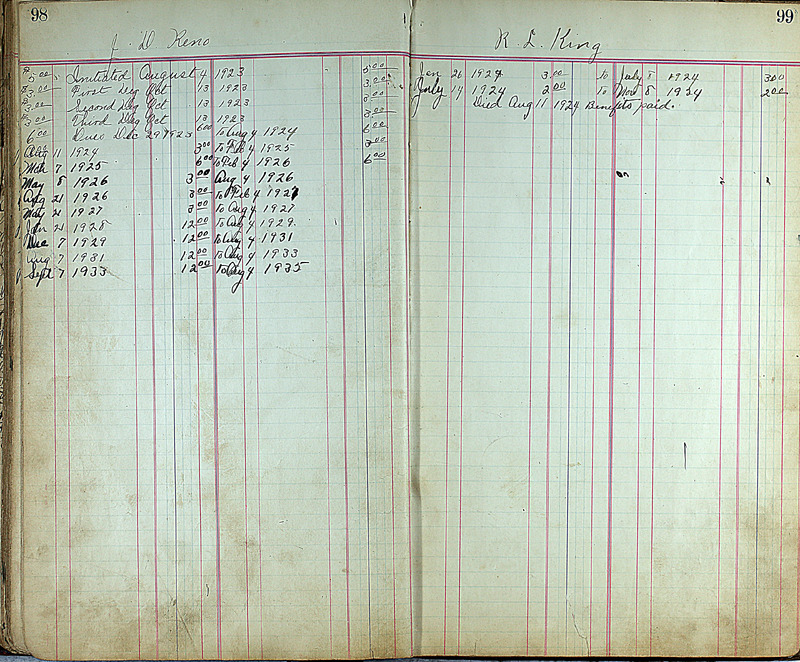 98
J. D. Reno
5.00 Initiated August 4 1923 5.00
3.00 First Deg Oct 13 1923 3.00
3.00 Second Deg Oct 13 1923
3.00 Third Deg Oct 13 1923 3.00
6.00 Dues Dec 29 1923 6.00 To Aug 4 1924 6.00
Aug 11 1924 3.00 To Feb 4 1925 3.00
Mch 7 1925 6.00 To Feb 4 1926 6.00
May 8 1926 3.00 Aug 4 1926
Aug 21 1926 3.00 To Feb 4 1927
May 21 1927 3.00 To Aug 4 1927
Jan 21 1928 12.00 To Aug 4 1929
Dec 7 1929 12.00 To Aug 4 1931
Aug 7 1931 12.00 To Aug 4 1933
Sept 7 1933 12.00 To Aug 4 1935
99
R. L. King
Jan 26 1924 3.00 To July 8 1924 300
July 14 1924 2.00 To Nov 8 1924 2.00
Died Aug 11 1924 Benefits paid.